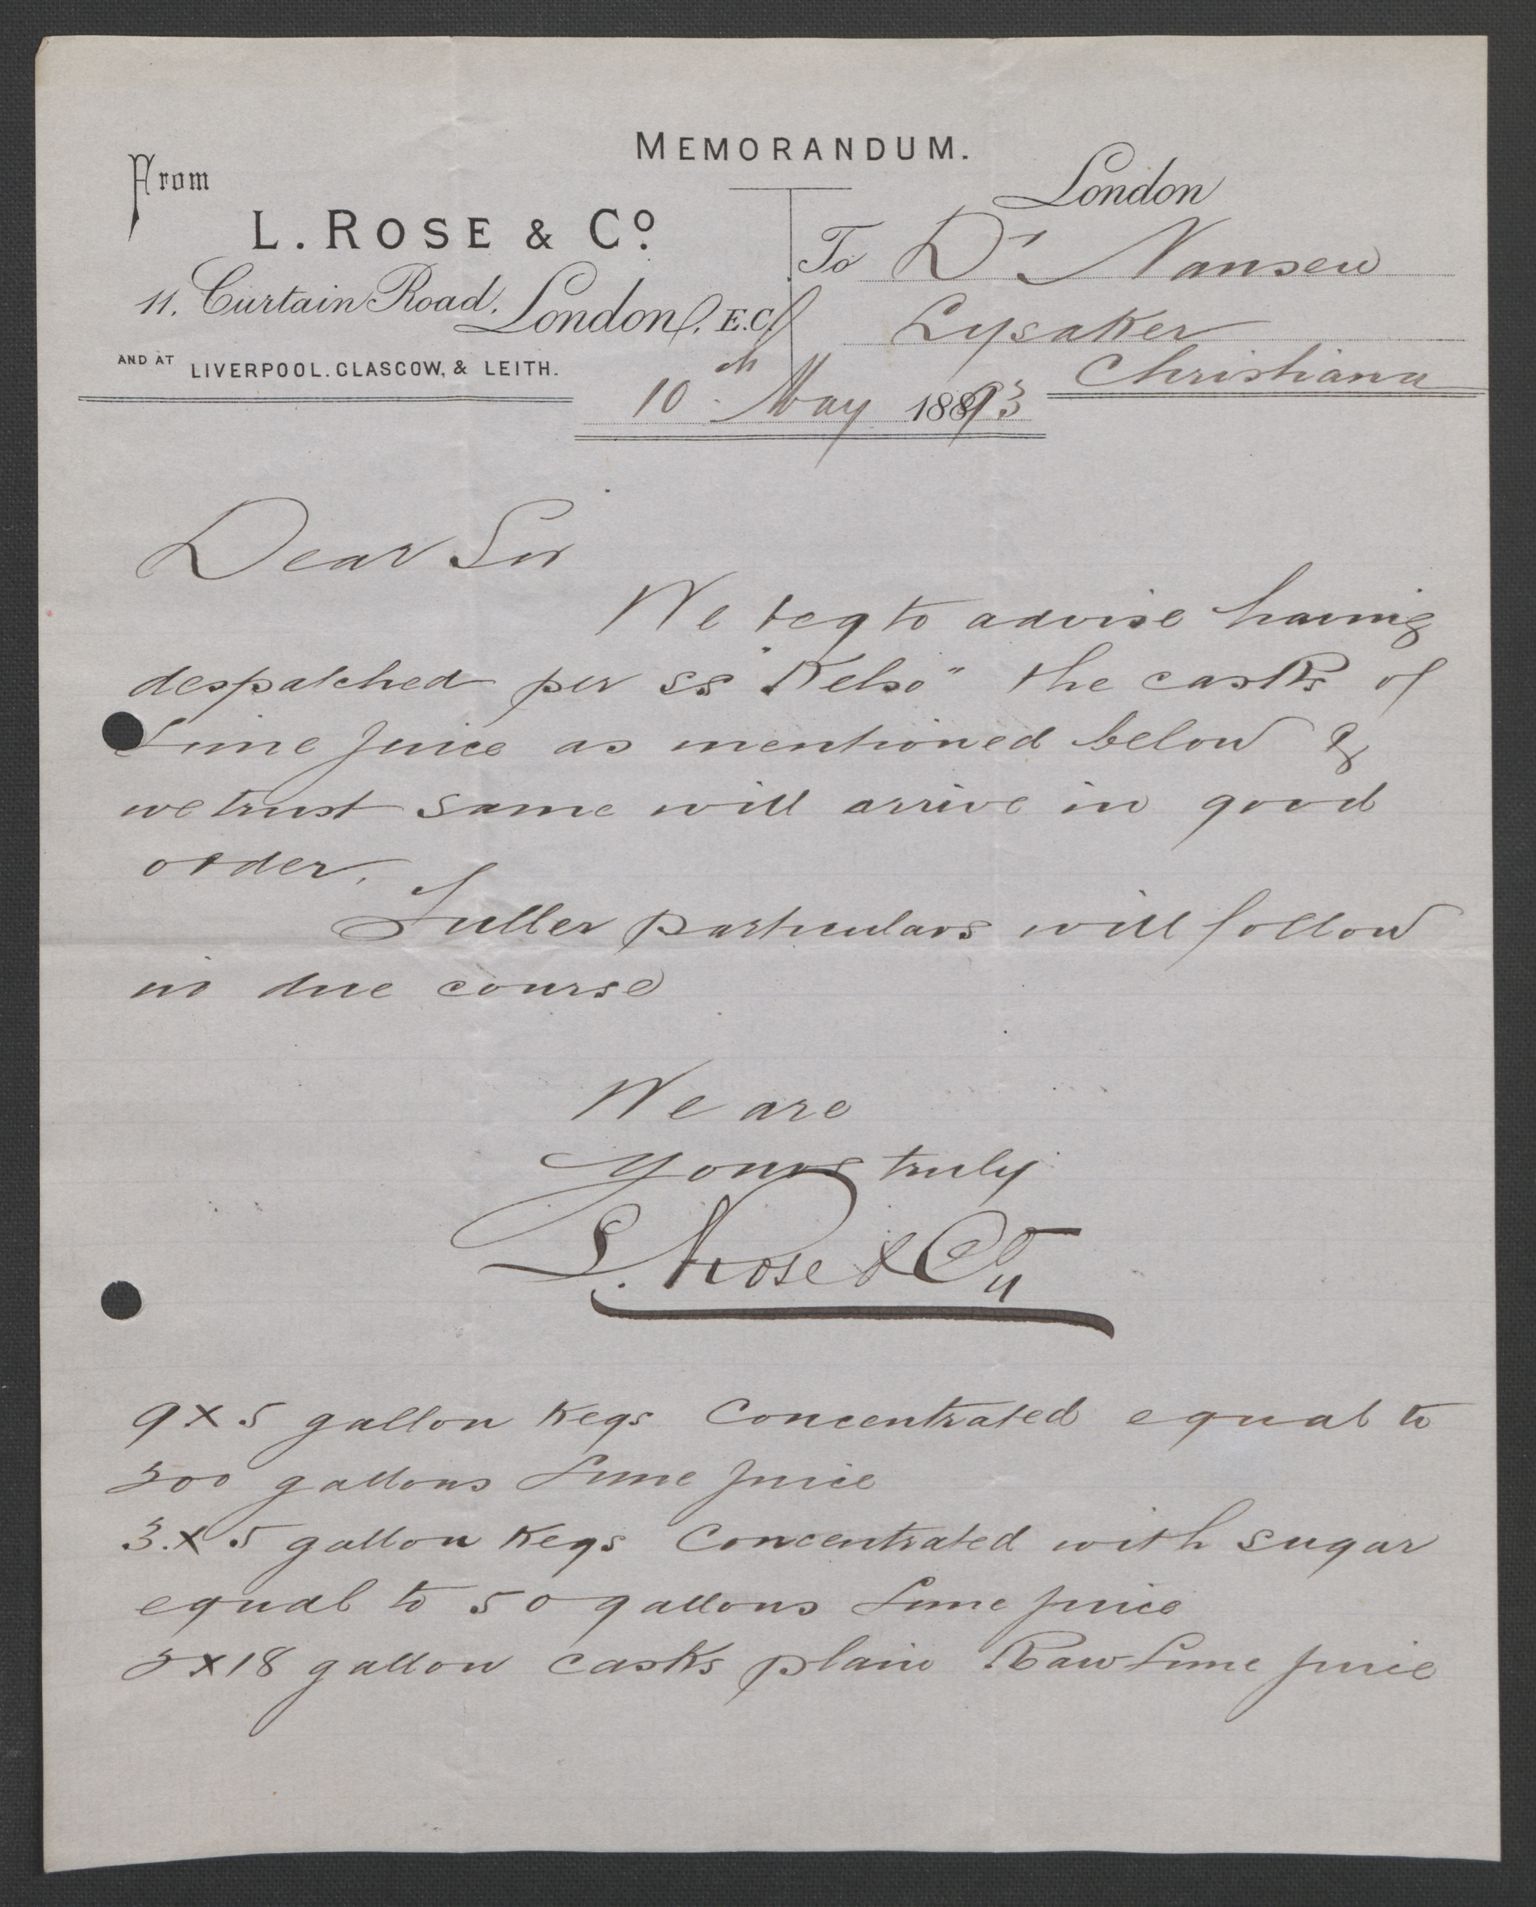 MEMORANDUM.
From
L. ROSE & Co.
11, Curtain Road, London, E.C.
AND AT LIVERPOOL, GLASGOW, & LEITH.
London
To Dr Nansen
Lysaker
Christiana
10th May 1893
Dear Sir
We beg to advise having
despatched per ss "Kelso" the casks of
Lime Juice as mentioned below &
we trust same will arrive in good
order.
Fuller particulars will follow
in due course
We are
Yours truly
L. Rose & Co
9 x 5 gallon kegs Concentrated equal to
gallons Lime Juice
3 x 5 gallon kegs Concentrated with sugar
equal to 50 gallons Lime juice
x 18 gallon casks plain Raw Lime juice